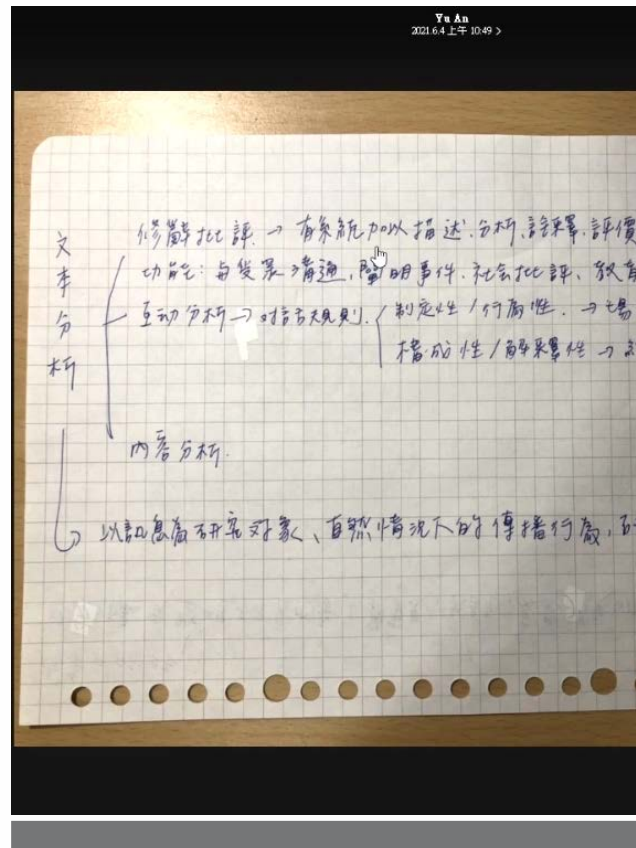 Yu An
2021.6.4 上午 10:49 >
文本分析
修辭批評 → 有系統加以描述.分析.詮釋.評價
功能: 與受眾溝通, 闡明事件. 社会批評、教育
互动分析 → 対話規則. 制定性/行為性. → 場
構成性/解釋性 →
內容分析.
以訊息為研究対象、自然情況下的傳播行為,